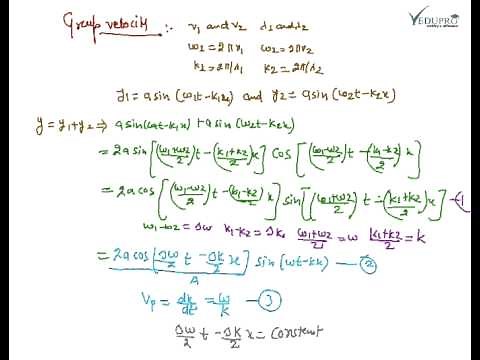 VEDUPRO
Group velocity :- ν1 and ν2 λ1 and λ2
ω1 = 2πν1 ω2 = 2πν2
k1 = 2π/λ1 k2 = 2π/λ2
y1 = a sin (ω1t - k1x) and y2 = a sin (ω2t - k2x)
y = y1 + y2 ⇒ a sin(ω1t - k1x) + a sin (ω2t - k2x)
= 2a sin [(ω1+ω2/2)t - (k1+k2/2)x] cos [(ω1-ω2/2)t - (k1-k2/2)x]
= 2a cos [(ω1-ω2/2)t - (k1-k2/2)x] sin [(ω1+ω2/2)t - (k1+k2/2)x] - 1
ω1 - ω2 = Δω k1 - k2 = Δk ω1+ω2/2 = ω k1+k2/2 = k
= 2a cos [Δω/2 t - Δk/2 x] sin (ωt - kx) — 2
A
Vp = dx/dt = ω/k — 3
Δω/2 t - Δk/2 x = constant